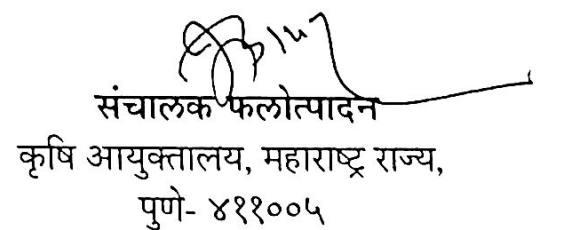 संचालक फलोत्पादन
कृषि आयुक्तालय, महाराष्ट्र राज्य,
पुणे- ४११००५